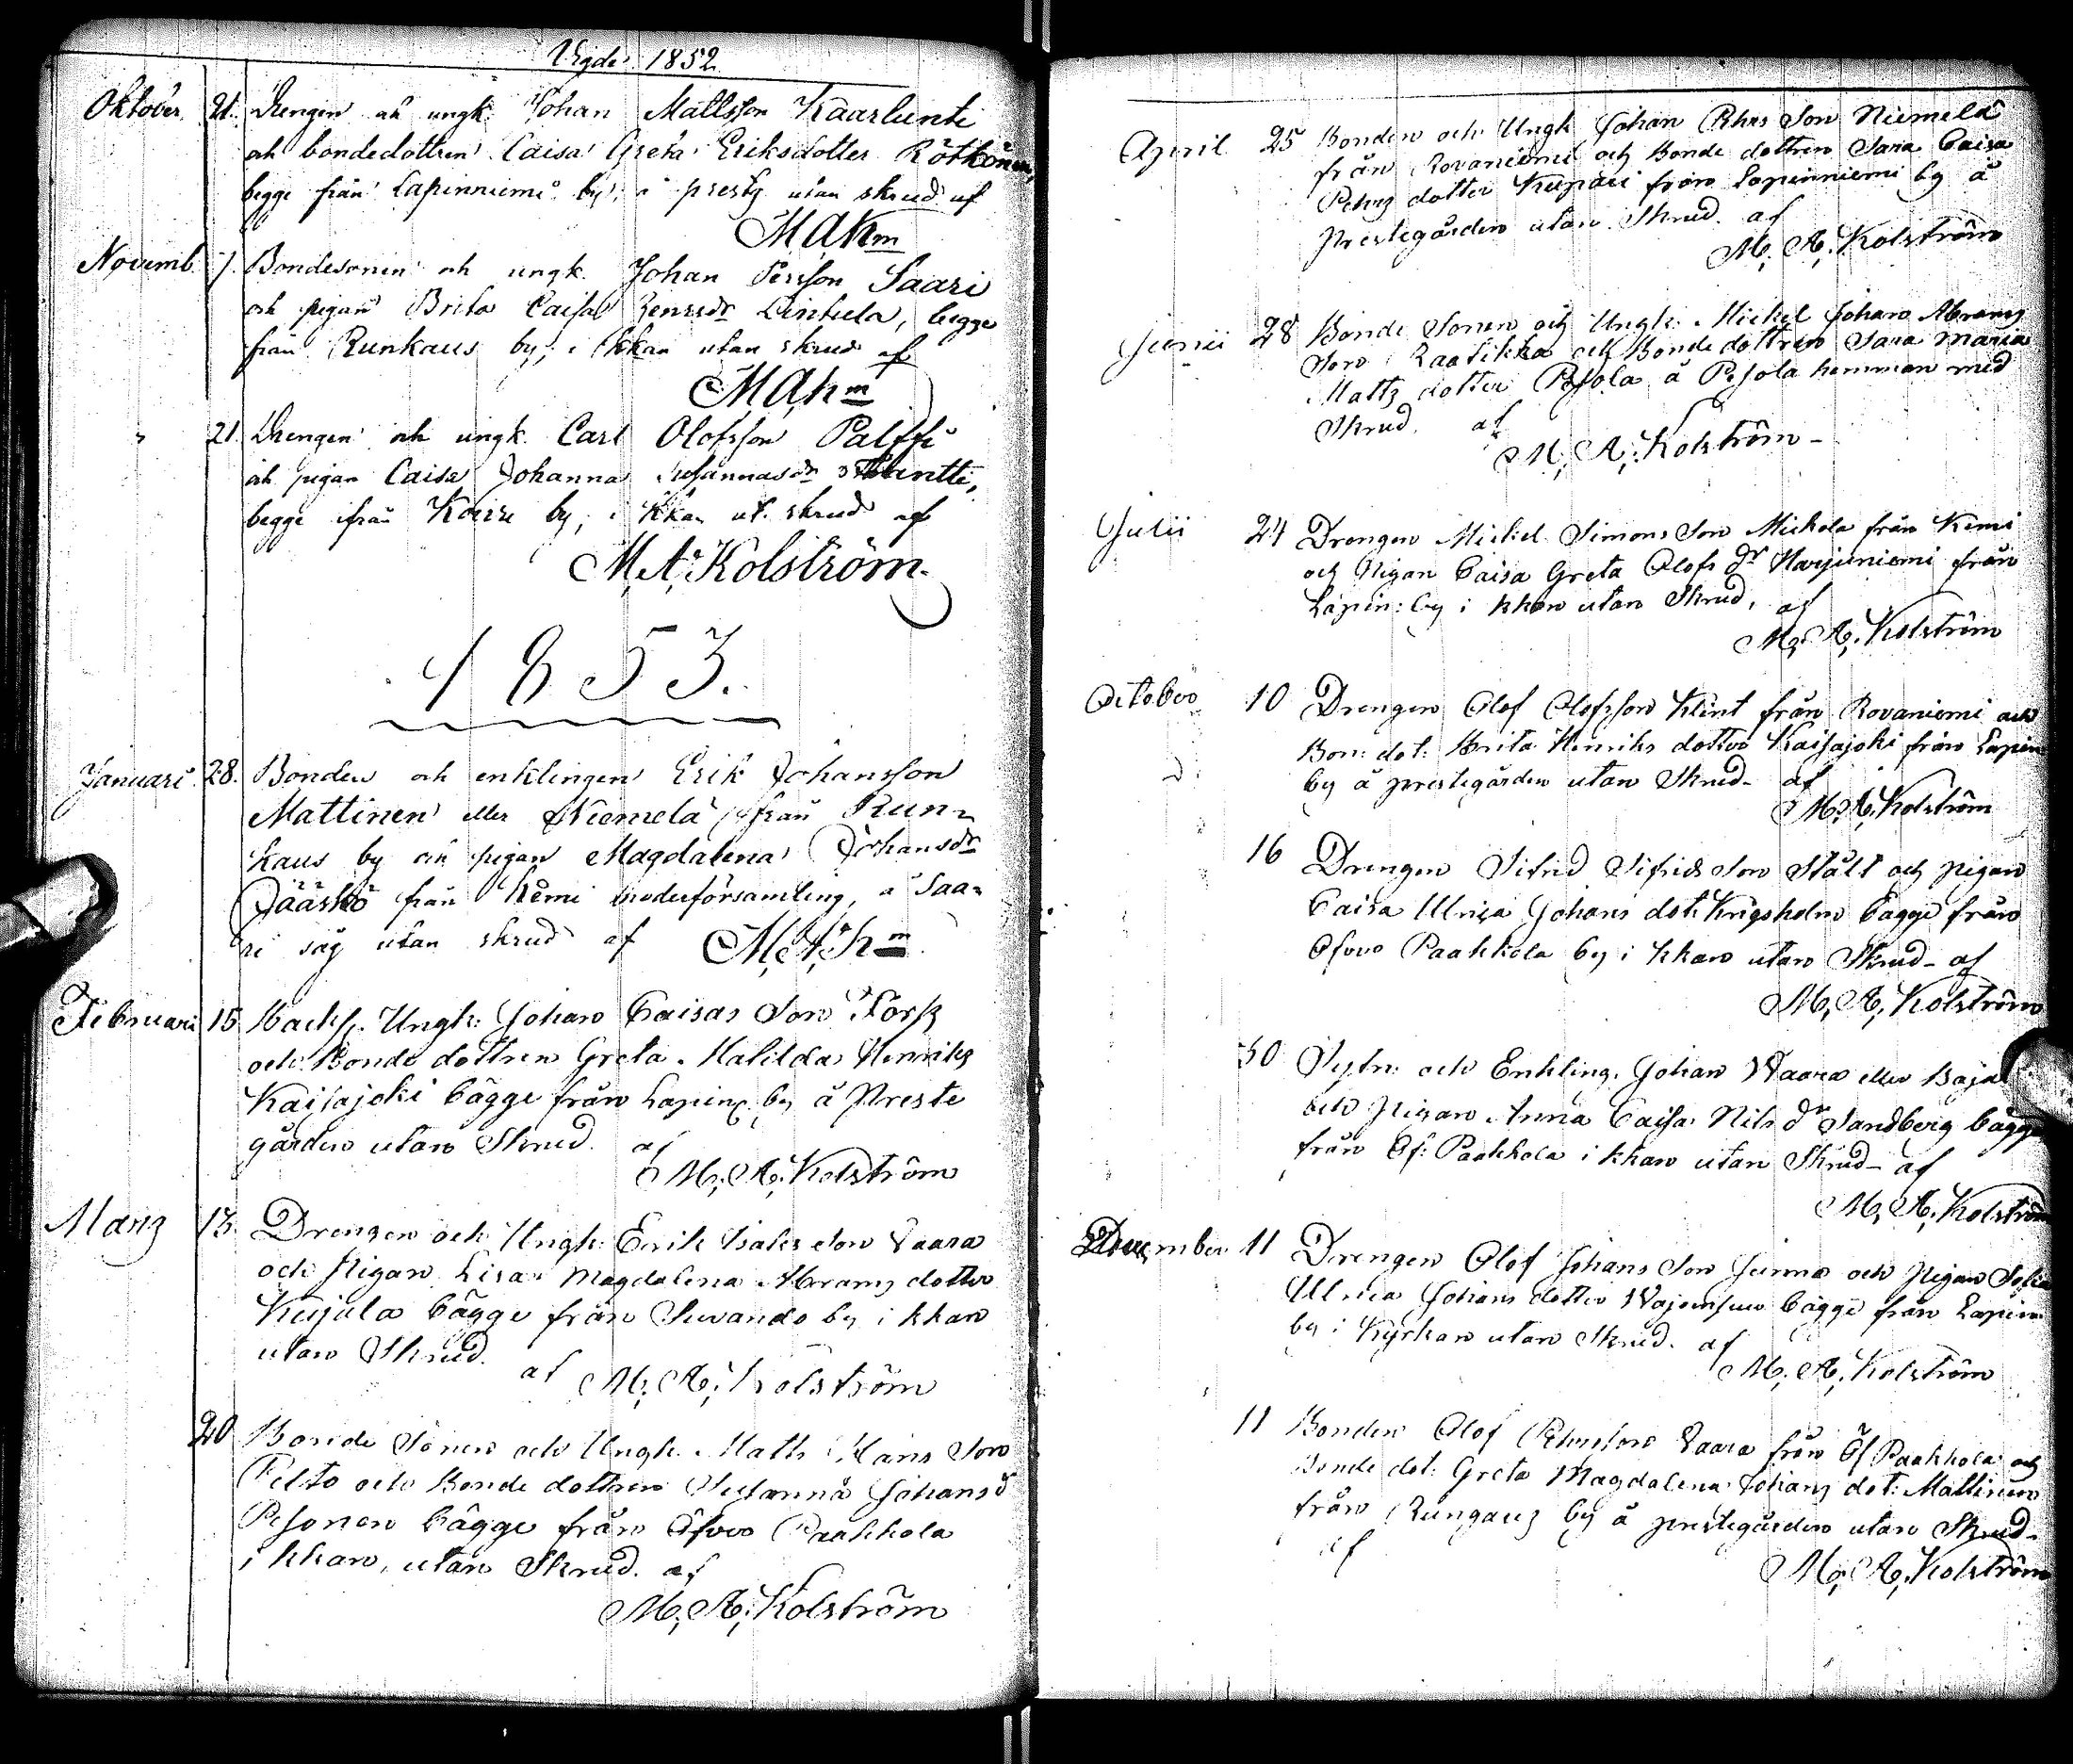 Vigde 1852
Oktober. 21. Drengen och ungk. Johan Mattsson Kaarlunti
och bondedottren Caisa Greta Eriksdotter Rötkönen,
begge från Lapinniemi by, i prestg utan skrud af
M A Km
Novemb. 7. Bondesonen och ungk. Johan Persson Saari
och pigan Brita Caisa Henrsdr Lintula, begge
från Runkaus by, i kkan utan skrud af
M A K m
" 21. Drengen och ungk. Carl Olofsson Palffi
och pigan Caisa Johanna
begge ifrån Koivu by, i kkan ut. skrud af
M. A. Kolström.
1853.
Januari 28. Bonden och enklingen Erik Johansson
Mattinen eller Niemelä från Run-
kaus by och pigan Magdalena Johansdr
Jääskö från Kemi moderförsamling, å Saa-
ri såg utan skrud af M. A. K m
Februari 15 Backst. Ungk: Johan Caisas Son Torp
och Bonde dottren Greta Matilda Henriks
Kaisajoki bägge från Lapin: by å Preste
gården utan Skrud. af
M. A. Kolström
Martz 13. Drengen och Ungk: Erik Isaks Son Vaara
och Pigan Lisa Magdalena Abramz dotter
Kujala bägge från Suvando by i kkan
utan Skrud. af M. A. Kolström
20 Bonde Sonen och Ungk. Matts Hans Son
Pelto och Bonde dottren Susanna Johans d
Pesonen bägge från Öfvre Paakkola
i kkan, utan Skrud. af
M. A. Kolström
April 25 Bonden och Ungk Johan Petters Son Niemelä
från Rovaniemi och Bonde dottren Sara Caisa
Petters dotter Kupari från Lapinniemi by å
Prestegården utan Skrud. af
M. A. Kolström
Junii 28 Bonde Sonen och Ungk: Mickel Johan Abramz
Son Raatikka och Bonde dottren Sara Maria
Mattz dotter Posola å Posola hemman med
Skrud. af
M. A. Kolström -
Julii 24 Drengen Mickel Simons Son Mickola från Kemi
och Pigan Caisa Greta Olofs dr Harjuniemi från
Lapin: by i kkan utan Skrud, af
M. A. Kolström
October 10 Drengen Olof Olofsson Klint från Rovaniemi och
Bon: dot: Brita Henriks dotter Kaisajoki från Lapin
by å prestegården utan Skrud- af
M. A. Kolström
16 Drengen Sifrid Sifrids Son Stålt och pigan
Caisa Ulrica Johans dot: Krigsholm bägge från
Öfvre Paakkola by i kkan utan Skrud- af
M. A. Kolström
30 Sytn: och Enkling. Johan Waara eller
och Pigan Anna Caisa Nils dr Sandberg bägge
från Öf: Paakkola i kkan utan Skrud- af
M. A. Kolström
December 11 Drengen Olof Johans Son Junna och Pigan
Ulrica Johans dotter bägge från Lapin
by i Kyrkan utan Skrud. af
M. A. Kolström
11 Bonden Olof Petterson Vaara från Öf Paakkola och
Bonde dot: Greta Magdalena Johanz dot: Mattinen
från Rungauz by å prestegården utan Skrud-
af
M. A. Kolström